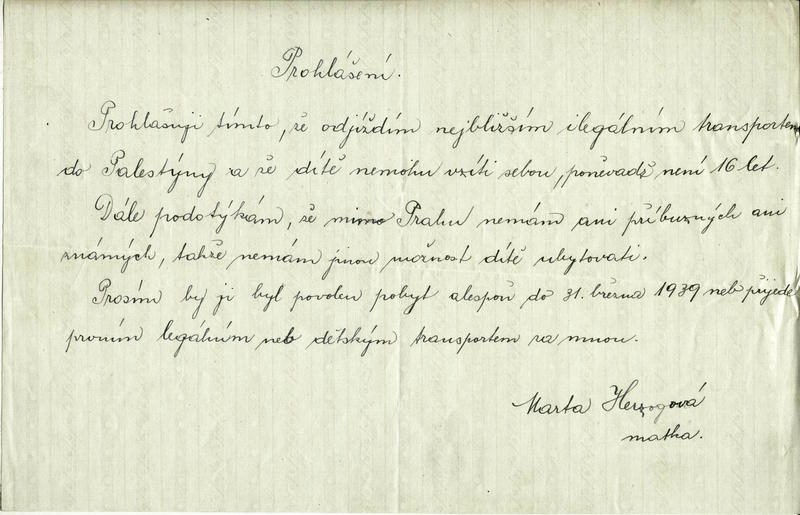 Prohlášení.
Prohlašuji tímto, že odjíždím nejbližším ilegálním transportem
do Palestýny a že dítě nemohu vzíti sebou, poněvadž není 16 let.
Dále podotýkám, že mimo Prahu nemám ani příbuzných ani
známých, takže nemám jinou možnost dítě ubytovati.
Prosím by ji byl povolen pobyt alespoň do 31. března 1939 neb přijede
prvním legálním neb dětským transportem za mnou.
Marta Herzogová
matka.